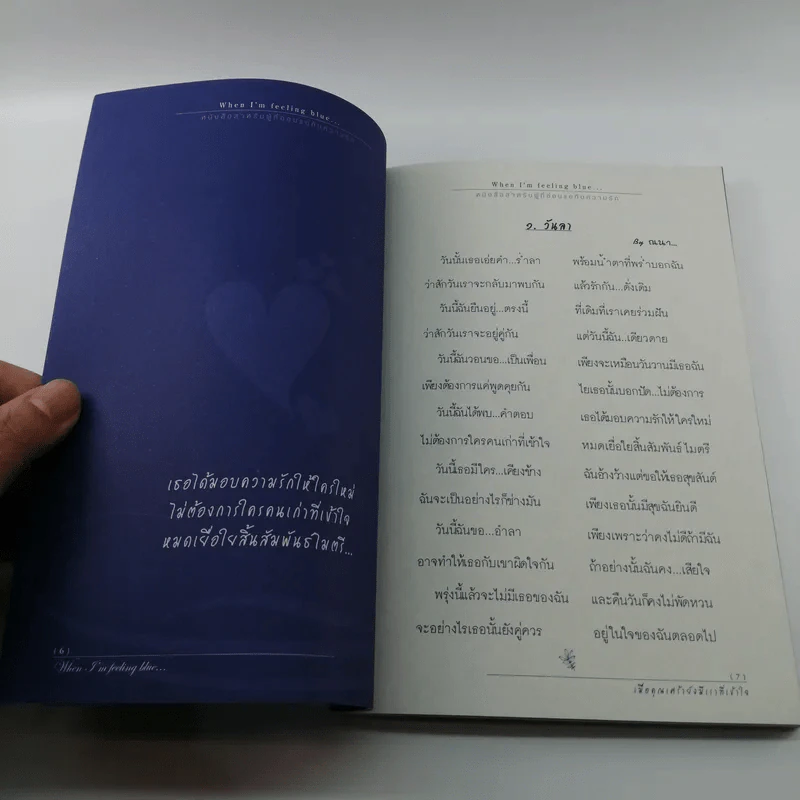 When I'm feeling blue...
หนังสือสำหรับผู้ที่มีอุปสรรคกับความรัก
เธอได้มอบความรักให้ใครใหม่
ไม่ต้องการใครคนเก่าที่เข้าใจ
หมดเยื่อใยสิ้นสัมพันธ์ไมตรี...
(6)
When I'm feeling blue...
When I'm feeling blue...
วันลา
By ณนา...
วันนั้นเธอเอ่ยคำ...ร่ำลา พร้อมน้ำตาที่พร่ำบอกฉัน
ว่าสักวันเราจะกลับมาพบกัน แล้วรักกัน...ดั่งเดิม
วันนี้ฉันยืนอยู่...ตรงนี้ ที่เดิมที่เราเคยร่วมฝัน
ว่าสักวันเราจะอยู่คู่กัน แต่วันนี้ฉัน...เดียวดาย
วันนี้ฉันวอนขอ...เป็นเพื่อน เพียงจะเหมือนวันวานมีเธอฉัน
เพียงต้องการแค่พูดคุยกัน ไยเธอนั้นบอกปัด...ไม่ต้องการ
วันนี้ฉันได้พบ...คำตอบ เธอได้มอบความรักให้ใครใหม่
ไม่ต้องการใครคนเก่าที่เข้าใจ หมดเยื่อใยสิ้นสัมพันธ์ ไมตรี
วันนี้เธอมีใคร...เคียงข้าง ฉันอ้างว้างแต่ขอให้เธอสุขสันต์
ฉันจะเป็นอย่างไรก็ช่างมัน เพียงเธอนั้นมีสุขฉันยินดี
วันนี้ฉันขอ...อำลา เพียงเพราะว่าคงไม่ดีถ้ามีฉัน
อาจทำให้เธอกับเขาผิดใจกัน ถ้าอย่างนั้นฉันคง...เสียใจ
พรุ่งนี้แล้วจะไม่มีเธอของฉัน และคืนวันก็คงไม่พัดหวน
จะอย่างไรเธอนั้นยังคู่ควร อยู่ในใจของฉันตลอดไป
(7)
เมื่อคุณเศร้ายังมีเราที่เข้าใจ